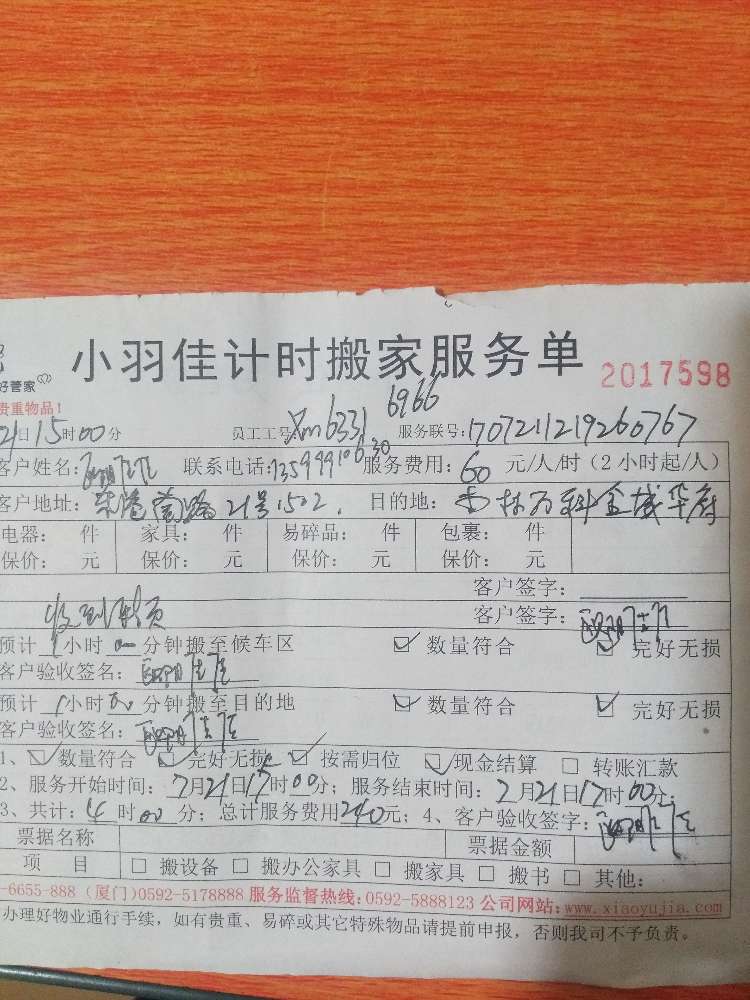 小羽佳计时搬家服务单 2017598
好管家
贵重物品！
21日15时00分 员工工号:Xm6331 6966 服务联号:1707211219260767
客户姓名: 联系电话: 服务费用:60元/人/时(2小时起/人)
客户地址:东港南路21号1502. 目的地:杏林万科金域华府
电器: 件 家具: 件 易碎品: 件 包裹: 件
保价: 元 保价: 元 保价: 元 保价: 元
客户签字:
收到 客户签字:
预计1小时00分钟搬至候车区 ☑数量符合 ☑完好无损
客户验收签名:
预计1小时00分钟搬至目的地 ☑数量符合 ☑完好无损
客户验收签名:
1、☑数量符合 ☑完好无损 ☑按需归位 ☑现金结算 □转账汇款
2、服务开始时间:7月21日17时00分; 服务结束时间:7月21日17时00分;
3、共计:4时00分; 总计服务费用240元; 4、客户验收签字:
票据名称 票据金额
项 目 □搬设备 □搬办公家具 □搬家具 □搬书 □其他:
-6655-888 (厦门)0592-5178888 服务监督热线:0592-5888123 公司网站:www.xiaoyujia.com
办理好物业通行手续，如有贵重、易碎或其它特殊物品请提前申报，否则我司不予负责。